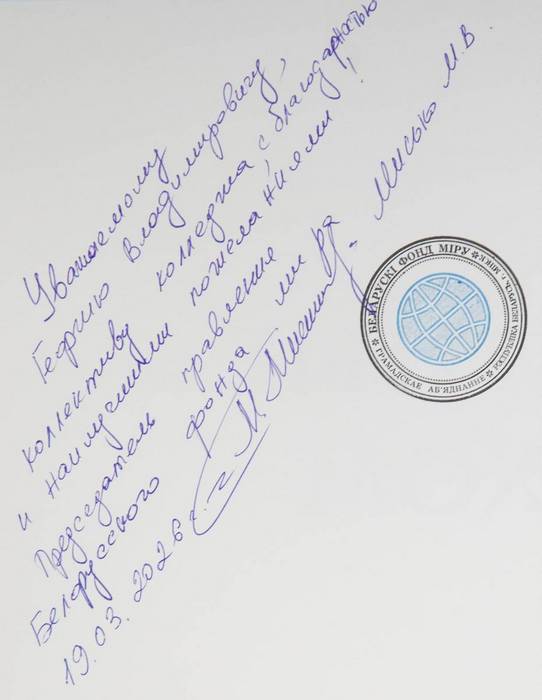 Уважаемому
Георгию Владимировичу,
коллективу колледжа с благодарностью
и наилучшими пожеланиями!
Председатель правления
Белорусского фонда мира
Мисько М.В.
19.03.2026 г.
БЕЛАРУСКІ ФОНД МІРУ
ГРАМАДСКАЕ АБ'ЯДНАННЕ
РЭСПУБЛІКА БЕЛАРУСЬ, г. МІНСК